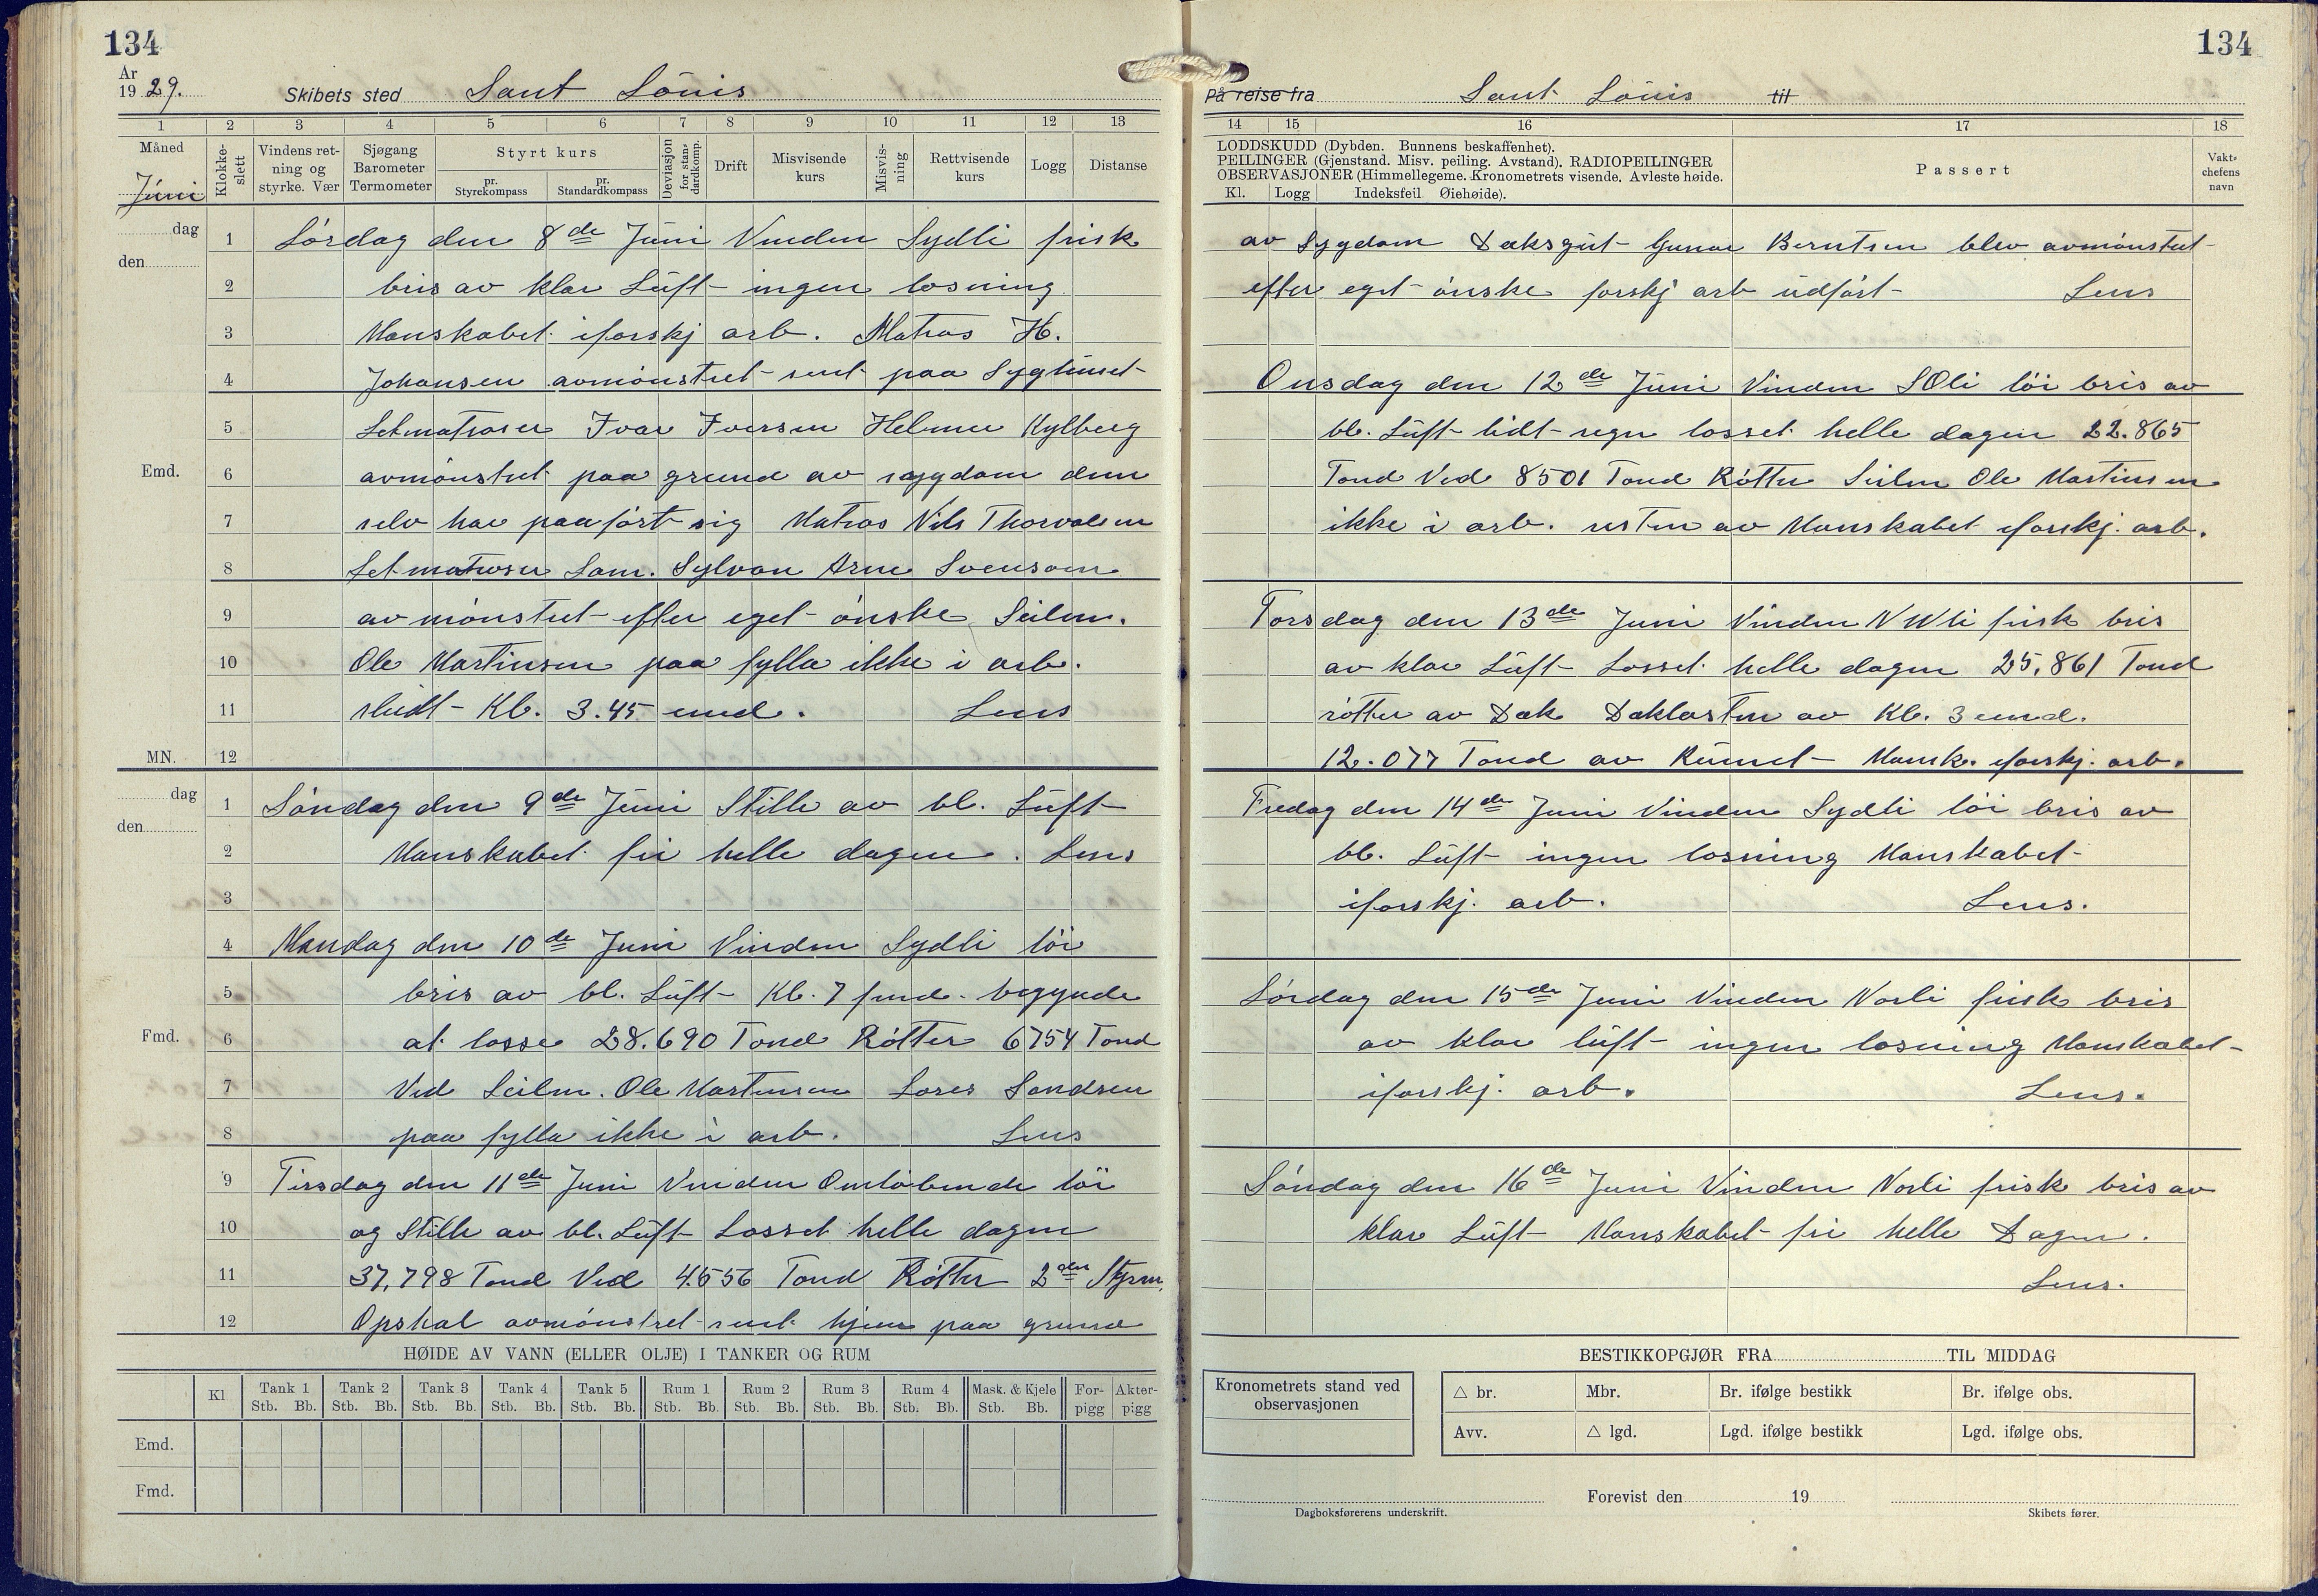 134
År
19 29.
Skibets sted Sant Louis
1 2 3 4 5 6 7 8 9 10 11 12 13
Måned
Juni
Klokke-
slett
Vindens ret-
ning og
styrke. Vær
Sjøgang
Barometer
Termometer
Styrt kurs
pr.
Styrekompass
pr.
Standardkompass
Deviasjon
for stan-
dardkomp.
Drift
Misvisende
kurs
Misvis-
ning
Rettvisende
kurs
Logg
Distanse
dag
den
Emd.
MN.
1 Lørdag den 8de Juni Vinden Sydli frisk
2 bris av klar Luft ingen losning
3 Manskabet iforskj arb. Matros H.
4 Johansen avmønstret sent paa Syghuset
5 Letmatroser Ivar Iversen Helmer Kylberg
6 avmønstret paa grund av sygdom dem
7 selv har paaført sig Matros Nils Thorvalsen
8 Letmatroser Sam. Sylvan Arne Svensom
9 avmønstret efter eget ønske Seilm.
10 Ole Martinsen paa fylla ikke i arb.
11 sludt Kl. 3.45 emd. Lens
12
dag
den
Fmd.
1 Søndag den 9de Juni Stille av bl. Luft
2 Manskabet fri helle dagen. Lens
3
4 Mandag den 10de Juni Vinden Sydli løi
5 bris av bl. Luft Kl. 7 fmd. begynde
6 at losse 28.690 Tond Røtter 6754 Tond
7 Ved Seilm. Ole Martinsen Lores Sandsen
8 paa fylla ikke i arb. Lens
9 Tirsdag den 11de Juni Vinden Omløbende løi
10 og Stille av bl. Luft Losset helle dagen
11 37,798 Tond Ved 4.656 Tond Røtter 2den Styrm.
12 Opskal avmønstret sent hjem paa grund
HØIDE AV VANN (ELLER OLJE) I TANKER OG RUM
Kl Tank 1 Tank 2 Tank 3 Tank 4 Tank 5 Rum 1 Rum 2 Rum 3 Rum 4 Mask. & Kjele For- Akter-
Stb. Bb. Stb. Bb. Stb. Bb. Stb. Bb. Stb. Bb. Stb. Bb. Stb. Bb. Stb. Bb. Stb. Bb. Stb. Bb. pigg pigg
Emd.
Fmd.
134
På reise fra Sant Louis til
14 15 16 17 18
LODDSKUDD (Dybden. Bunnens beskaffenhet).
PEILINGER (Gjenstand. Misv. peiling. Avstand). RADIOPEILINGER
OBSERVASJONER (Himmellegeme. Kronometrets visende. Avleste høide.
Kl. Logg Indeksfeil Øiehøide).
Passert
Vakt-
chefens
navn
av Sygdom Daksgut Gunar Berntsen blev avmønstret
efter eget ønske forskj arb udført Lens
Onsdag den 12de Juni Vinden SOli løi bris av
bl. Luft lidt regn losset helle dagen 22.865
Tond Ved 8501 Tond Røtter Seilm Ole Martinsen
ikke i arb. resten av Manskabet iforskj. arb.
Torsdag den 13de Juni Vinden NWli frisk bris
av klar Luft Losset helle dagen 25,861 Tond
røtter av Dæk Dæklasten av Kl. 3 emd.
12.077 Tond av Rumet Mansk. iforskj. arb.
Fredag den 14de Juni Vinden Sydli løi bris av
bl. Luft ingen losning Manskabet
iforskj. arb. Lens.
Lørdag den 15de Juni Vinden Norli frisk bris
av klar luft ingen losning Manskabet
iforskj. arb. Lens.
Søndag den 16de Juni Vinden Norli frisk bris av
klar Luft Manskabet fri helle Dagen.
Lens.
BESTIKKOPGJØR FRA TIL MIDDAG
Kronometrets stand ved
observasjonen
△ br. Mbr. Br. ifølge bestikk Br. ifølge obs.
Avv. △ lgd. Lgd. ifølge bestikk Lgd. ifølge obs.
Forevist den 19
Dagboksførerens underskrift.
Skibets fører.